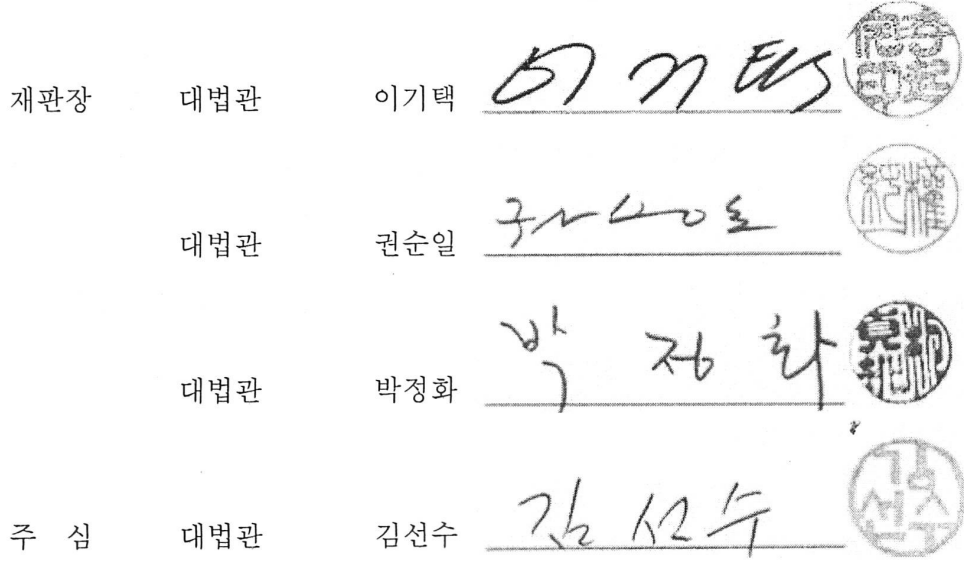 재판장 대법관 이기택 이기택
대법관 권순일 권순일
대법관 박정화 박정화
주 심 대법관 김선수 김선수 김선수